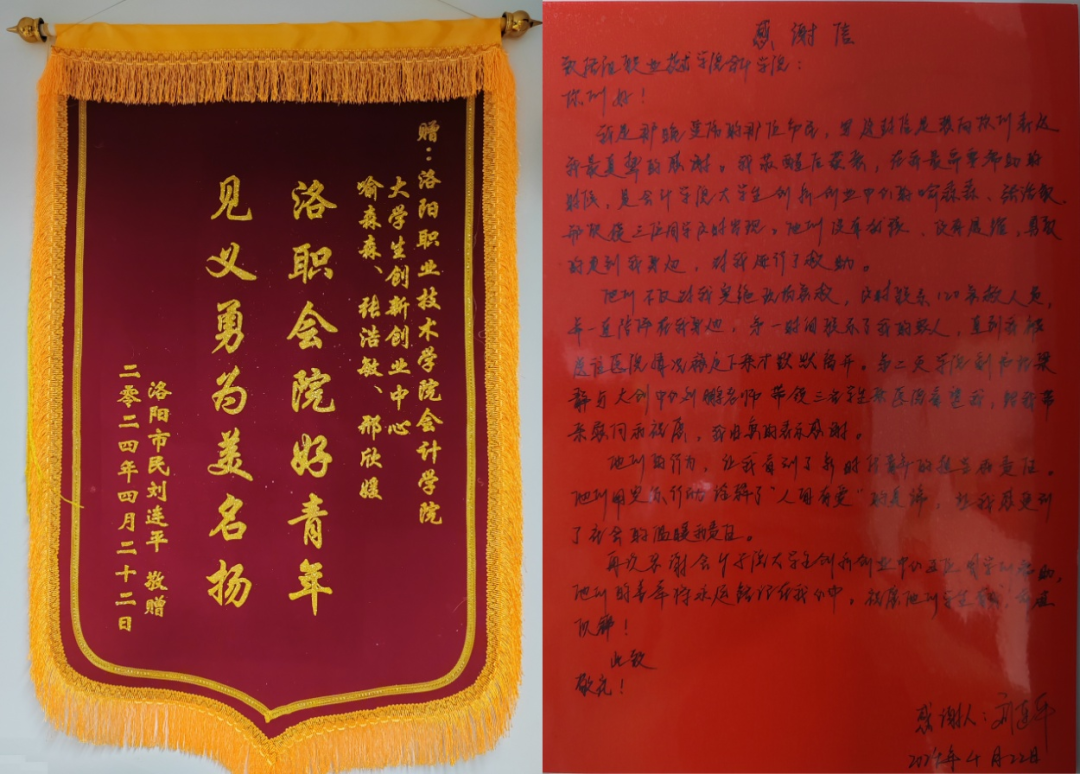 赠：洛阳职业技术学院会计学院
大学生创新创业中心
喻森森、张浩敏、邢欣媛
洛职会院好青年
见义勇为美名扬
洛阳市民刘连平 敬赠
二零二四年四月二十二日
感谢信
致洛阳职业技术学院会计学院：
你们好！
我是那晚受伤的那位市民，写这封信是想向你们表达
我最真挚的感谢。我在最需要帮助的
时候，是会计学院大学生创新创业中心的喻森森、张浩敏、
邢欣媛三位同学及时出现。他们没有犹豫，没有退缩，勇敢
的来到我身边，对我进行了救助。
他们不仅给我实施急救，及时联系120急救人员，
并一直陪伴在我身边，第一时间联系了我的家人，直到我被
送往医院情况稳定下来才默默离开。第二天学院副书记
与大创中心刘老师带领三名学生来医院看望我，给我带
来慰问和祝愿，我由衷的表示感谢。
他们的行为，让我看到了新时代青年的担当和责任。
他们用实际行动诠释了“人间有爱”的真谛，让我感受到
了社会的温暖和责任。
再次感谢会计学院大学生创新创业中心这三位同学的帮助，
他们的善举将永远铭记在我心中。祝愿他们学生
此致
敬礼！
感谢人：刘连平
2024年4月22日